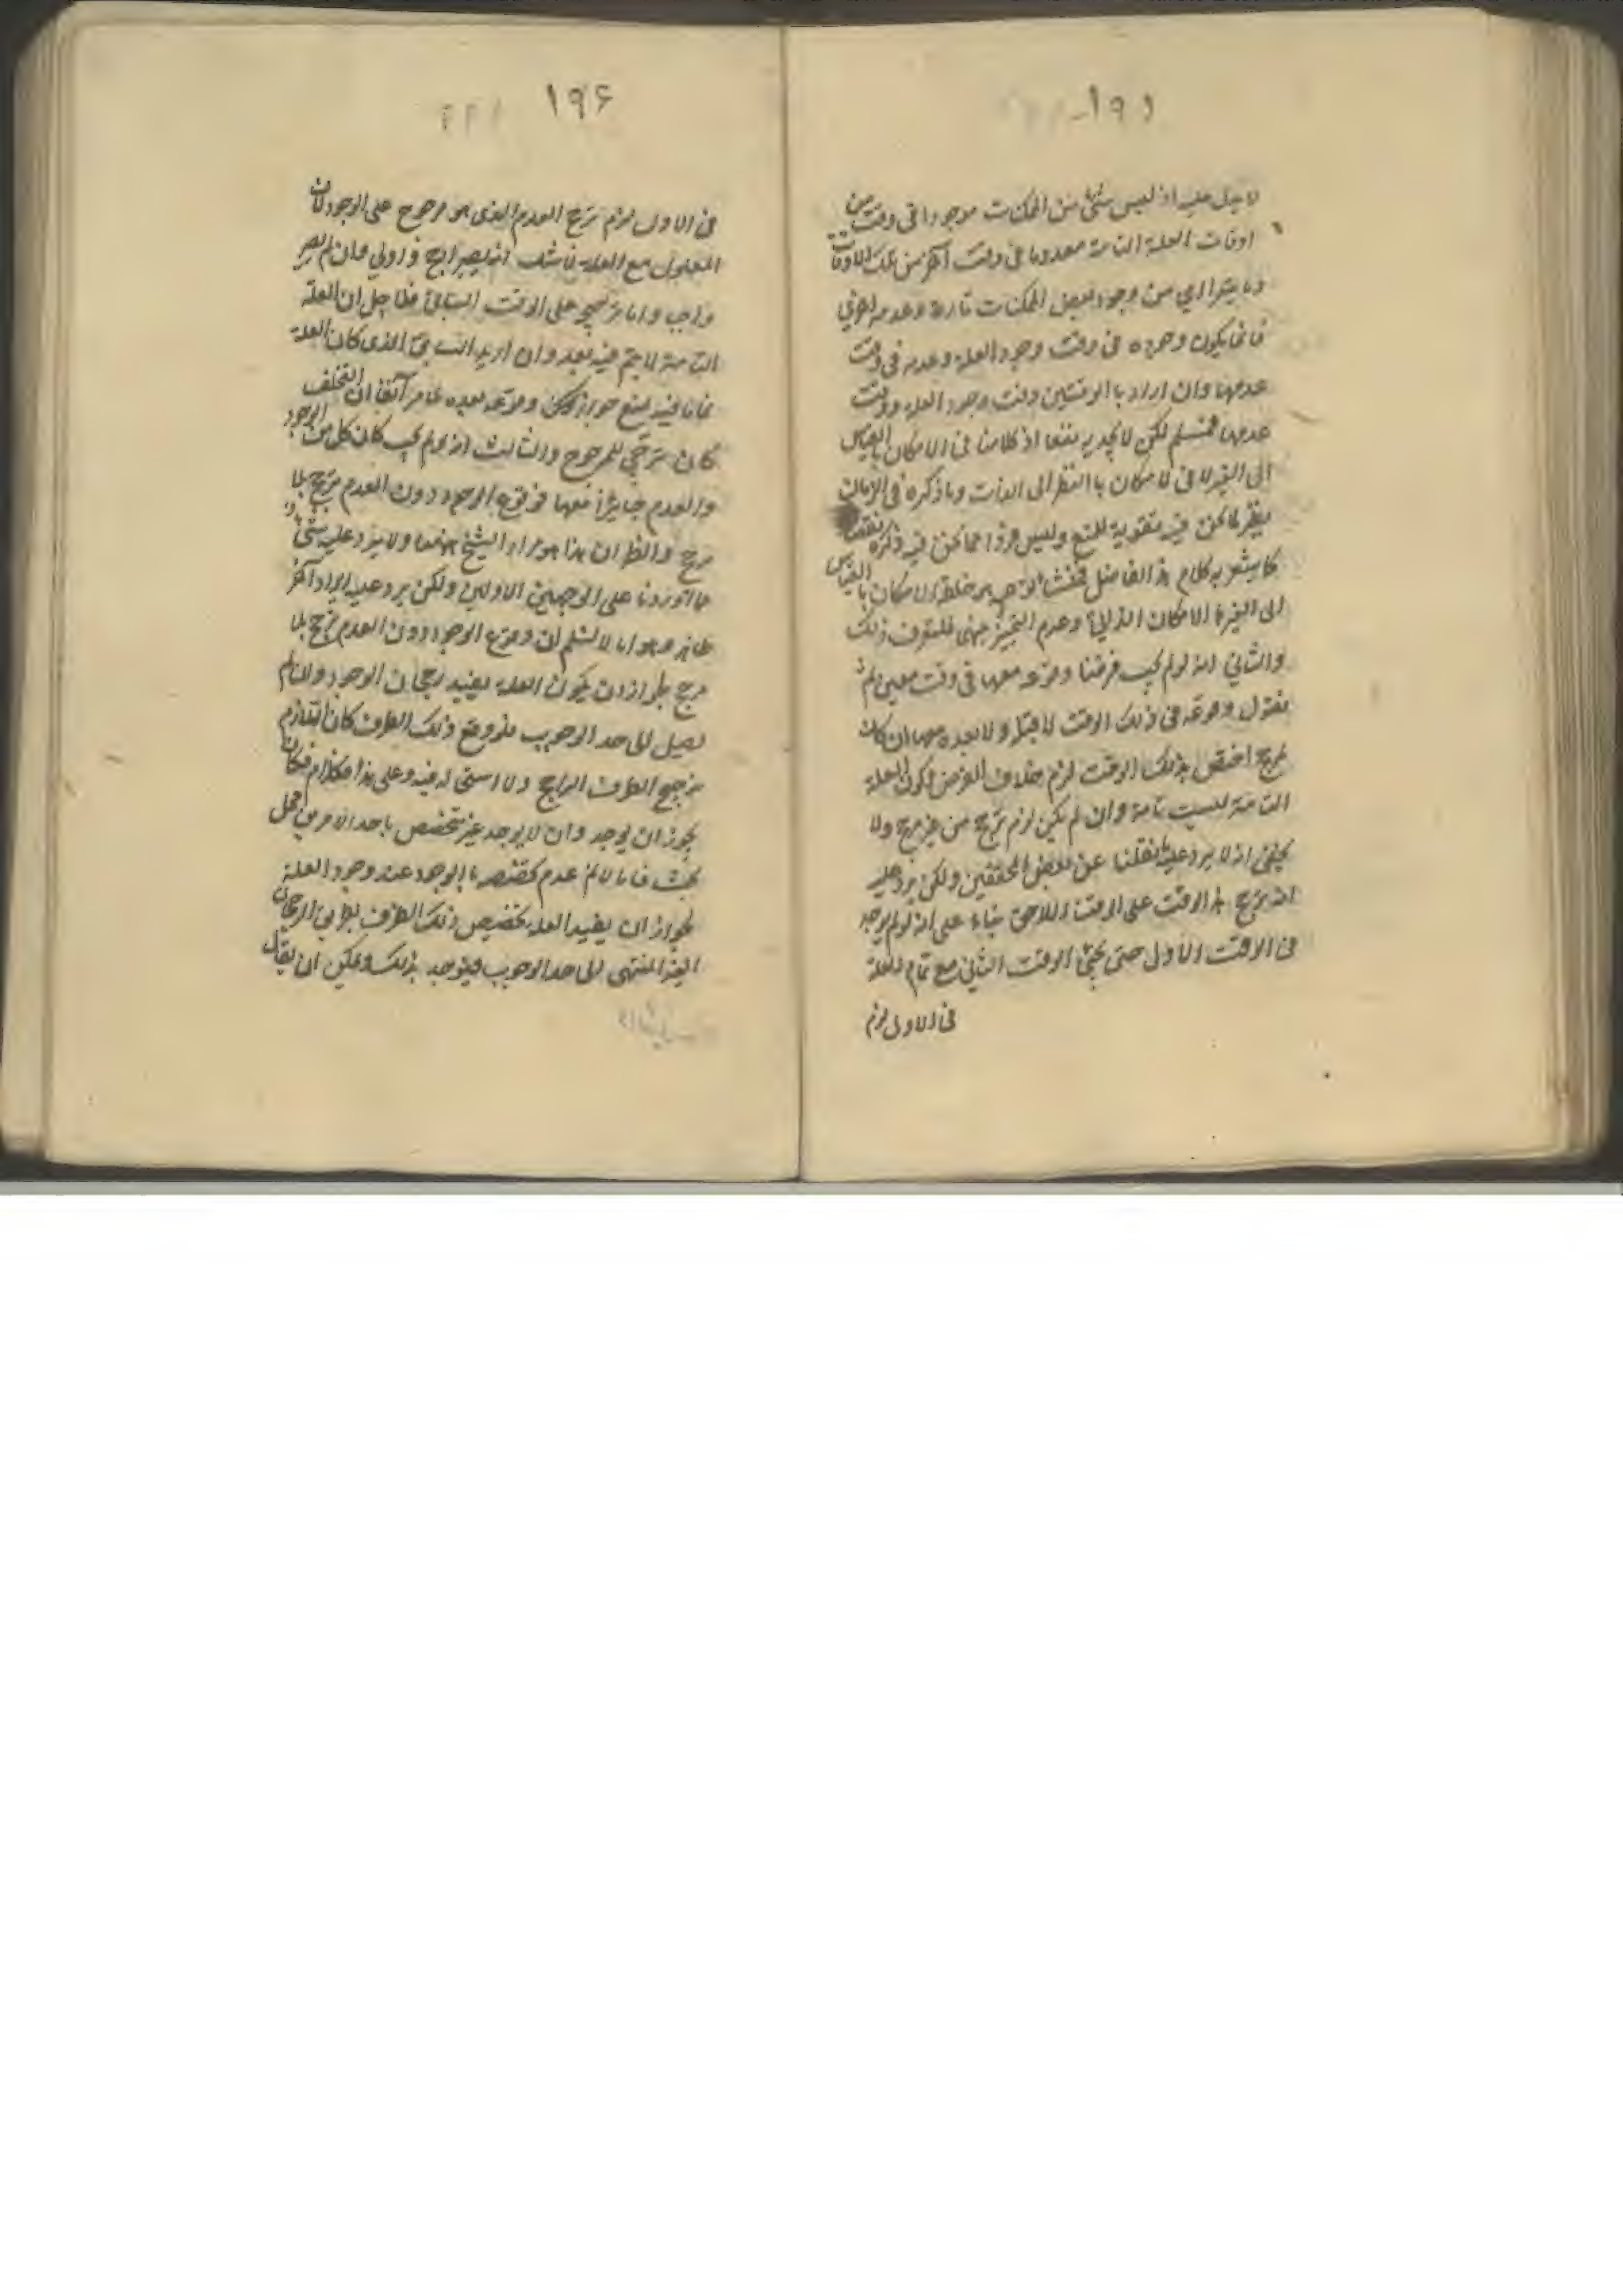 ١٩٥
لا يدل عليه اذ ليس شئ من الممكنات موجودا فى وقت من
اوقات العلة التامة معدوما فى وقت آخر من تلك الاوقات
وما يترااى من وجود بعض الممكنات تارة وعدمه اخرى
فانما يكون وجوده فى وقت وجود العلة وعدمه فى وقت
عدمها وان اراد بالوقتين وقت وجود العلة ووقت
عدمها فمسلم لكن لا يجديه نفعا اذ كلامنا فى الامكان بالقياس
الى الغير لا فى الامكان بالنظر الى الذات وما ذكره فى الزمان
نظير لما نحن فيه تقوية للمنع وليس فردا مما نحن فيه ذكره نقضا
كما يشعر به كلام هذا الفاضل فمنشأ توهمه خلط الامكان بالقياس
الى الغير بالامكان الذاتى وعدم التميز بينهما فليعرف ذلك
والثانى انه لو لم يجب فرضنا وقوعه معها فى وقت معين ثم
نقول وقوعه فى ذلك الوقت لا قبله ولا بعده معها ان كان
لمرجح اختص بذلك الوقت لزم خلاف الفرض لكون العلة
التامة ليست تامة وان لم يكن لزم ترجح من غير مرجح ولا
يخفى انه لا يرد عليه ما نقلنا عن بعض المحققين ولكن يرد عليه
انه يرجح هذا الوقت على الوقت اللاحق بناء على انه لو لم يوجد
فى الوقت الاول حتى يجئ الوقت الثانى مع تمام العلة
فى الاول لزم
١٩۶
فى الاول لزم ترجح العدم الذى هو مرجوح على الوجود لان
المعلول مع العلة لا شك انه يصير راجح واولى وان لم يصر
واجب واما ترجيحه على الوقت السابق فلاجل ان العلة
التامة لا يتم فيه بعد وان اريد السابق الذى كان العلة
تماما فيه يمنع جواز وقوعه بعده لما مر آنفا ان التخلف
كان ترجح للمرجوح والثالث انه لو لم يجب كان كل من الوجود
والعدم جايزا معها فوقوع الوجود دون العدم ترجح بلا
مرجح والظ ان هذا هو مراد الشيخ ههنا ولا يرد عليه شئ
مما اوردنا على الوجهين الاولين ولكن يرد عليه ايراد آخر
ظاهر وهو انا لا نسلم ان وقوع الوجود دون العدم ترجح بلا
مرجح لجواز ان يكون العلة يفيد رجحان الوجود وان لم
يصل الى حد الوجوب فلو وقع ذلك الطرف كان اللازم
ترجيح الطرف الراجح ولا استحالة فيه وعلى هذا فكان
يجوز ان يوجد وان لا يوجد غير متخصص باحد الامرين محل
بحث فانا لا نم عدم تخصصه بالوجود عند وجود العلة
لجواز ان يفيد العلة تخصيص ذلك الطرف بطريق الرجحان
الغير المنتهى الى حد الوجوب فيوجد بذلك ويمكن ان يقال